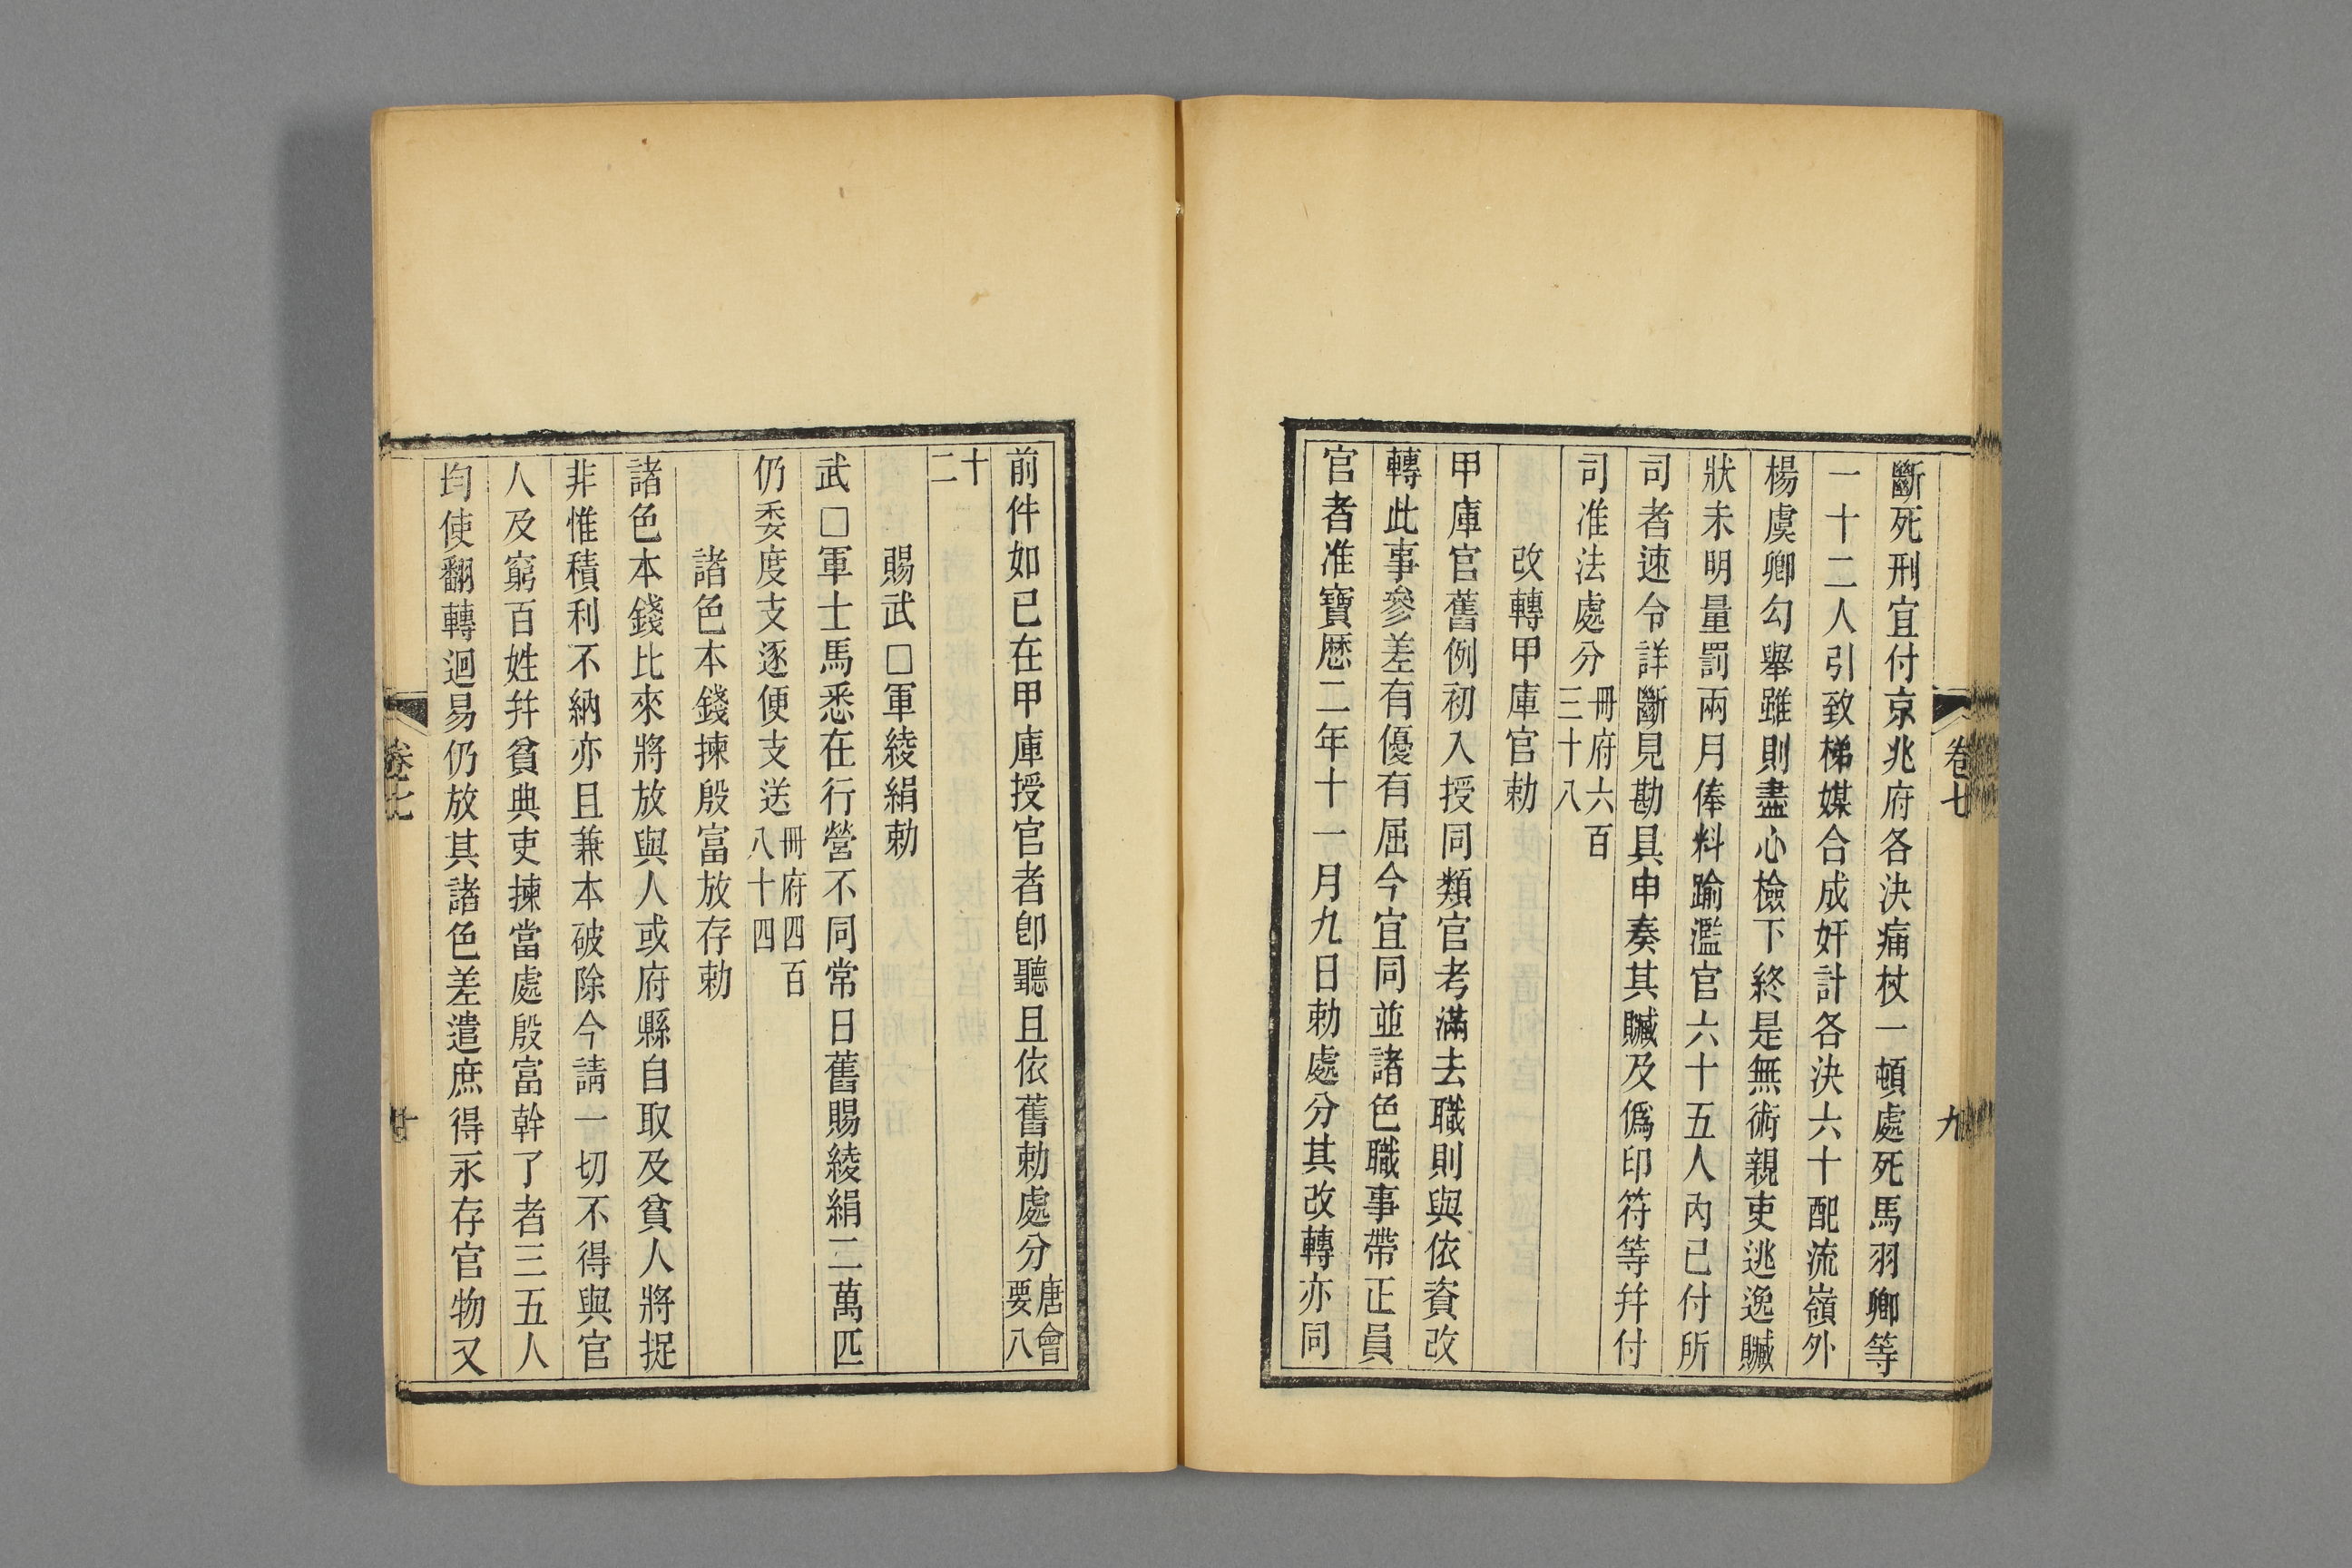 卷七
九
斷死刑宜付京兆府各決痛杖一頓處死馬羽卿等
一十二人引致梯媒合成奸計各決六十配流嶺外
楊虞卿勾舉雖則盡心檢下終是無術親吏逃逸贓
狀未明量罰兩月俸料踰濫官六十五人內已付所
司者速令詳斷見勘具申奏其贓及僞印符等幷付
司准法處分冊府六百三十八
改轉甲庫官勅
甲庫官舊例初入授同類官考滿去職則與依資改
轉此事參差有優有屈今宜同並諸色職事帶正員
官者准寶歷二年十一月九日勅處分其改轉亦同
前件如已在甲庫授官者卽聽且依舊勅處分唐會要八
十二
賜武□軍綾絹勅
武□軍士馬悉在行營不同常日舊賜綾絹二萬匹
仍委度支逐便支送冊府四百八十四
諸色本錢揀殷富放存勅
諸色本錢比來將放與人或府縣自取及貧人將捉
非惟積利不納亦且兼本破除今請一切不得與官
人及窮百姓幷貧典吏揀當處殷富幹了者三五人
均使翻轉迴易仍放其諸色差遣庶得永存官物又
卷七
十